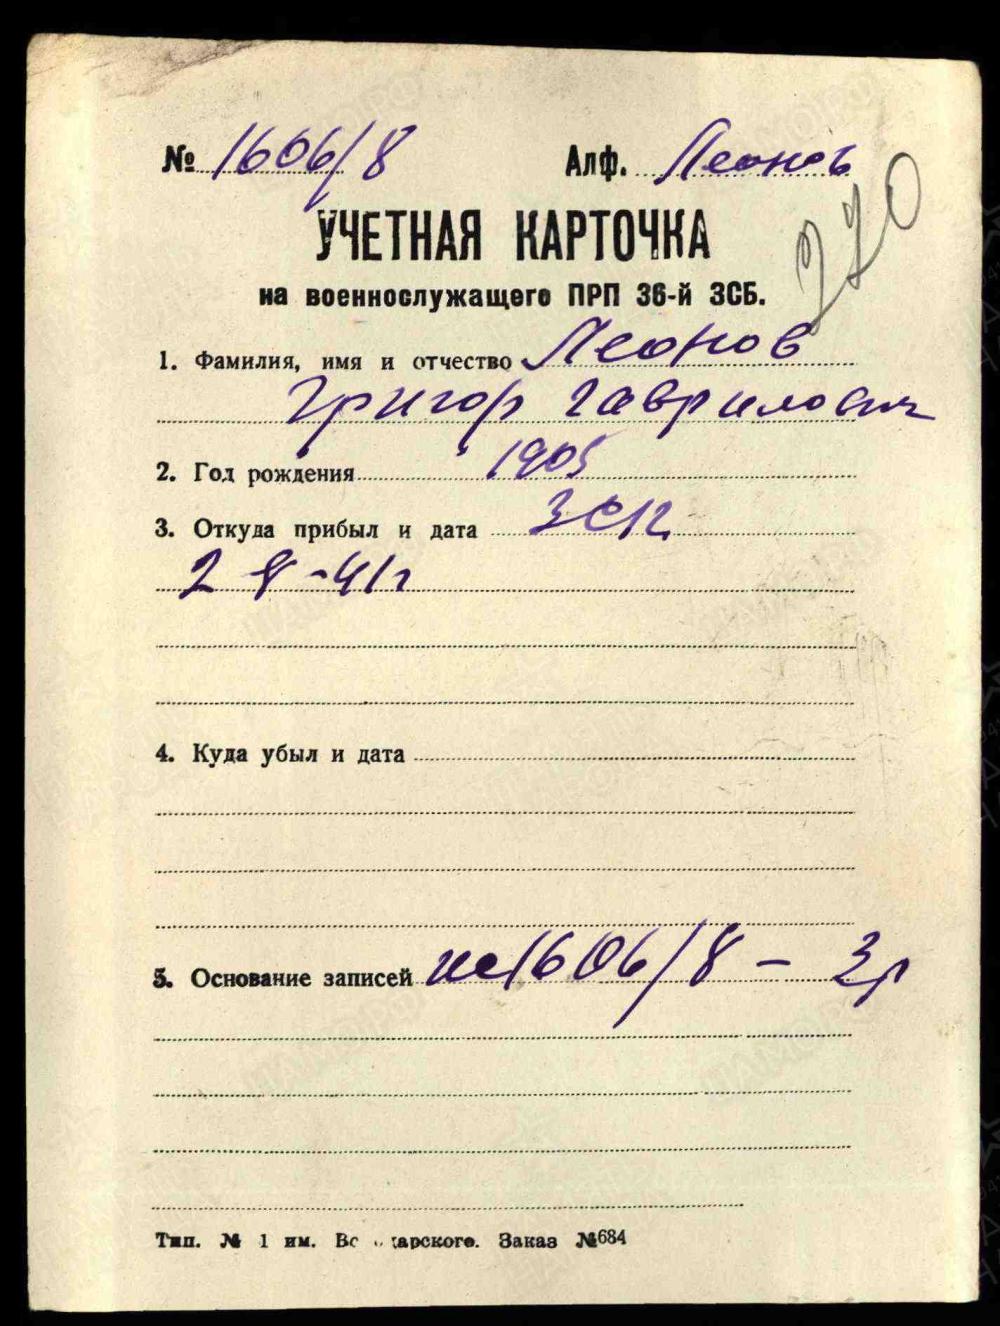 № 1606/8 Алф. Леонов
270
УЧЕТНАЯ КАРТОЧКА
на военнослужащего ПРП 36-й ЗСБ.
1. Фамилия, имя и отчество Леонов
Григор Гаврилович
2. Год рождения 1905
3. Откуда прибыл и дата ЗСП
2-8-41г
4. Куда убыл и дата
5. Основание записей 1606/8 -
Тип. № 1 им. Заказ №684